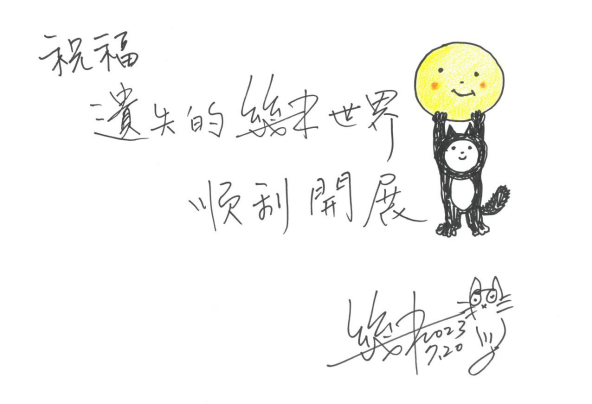 祝福
遺失的幾米世界
順利開展
幾米 2023
7.20